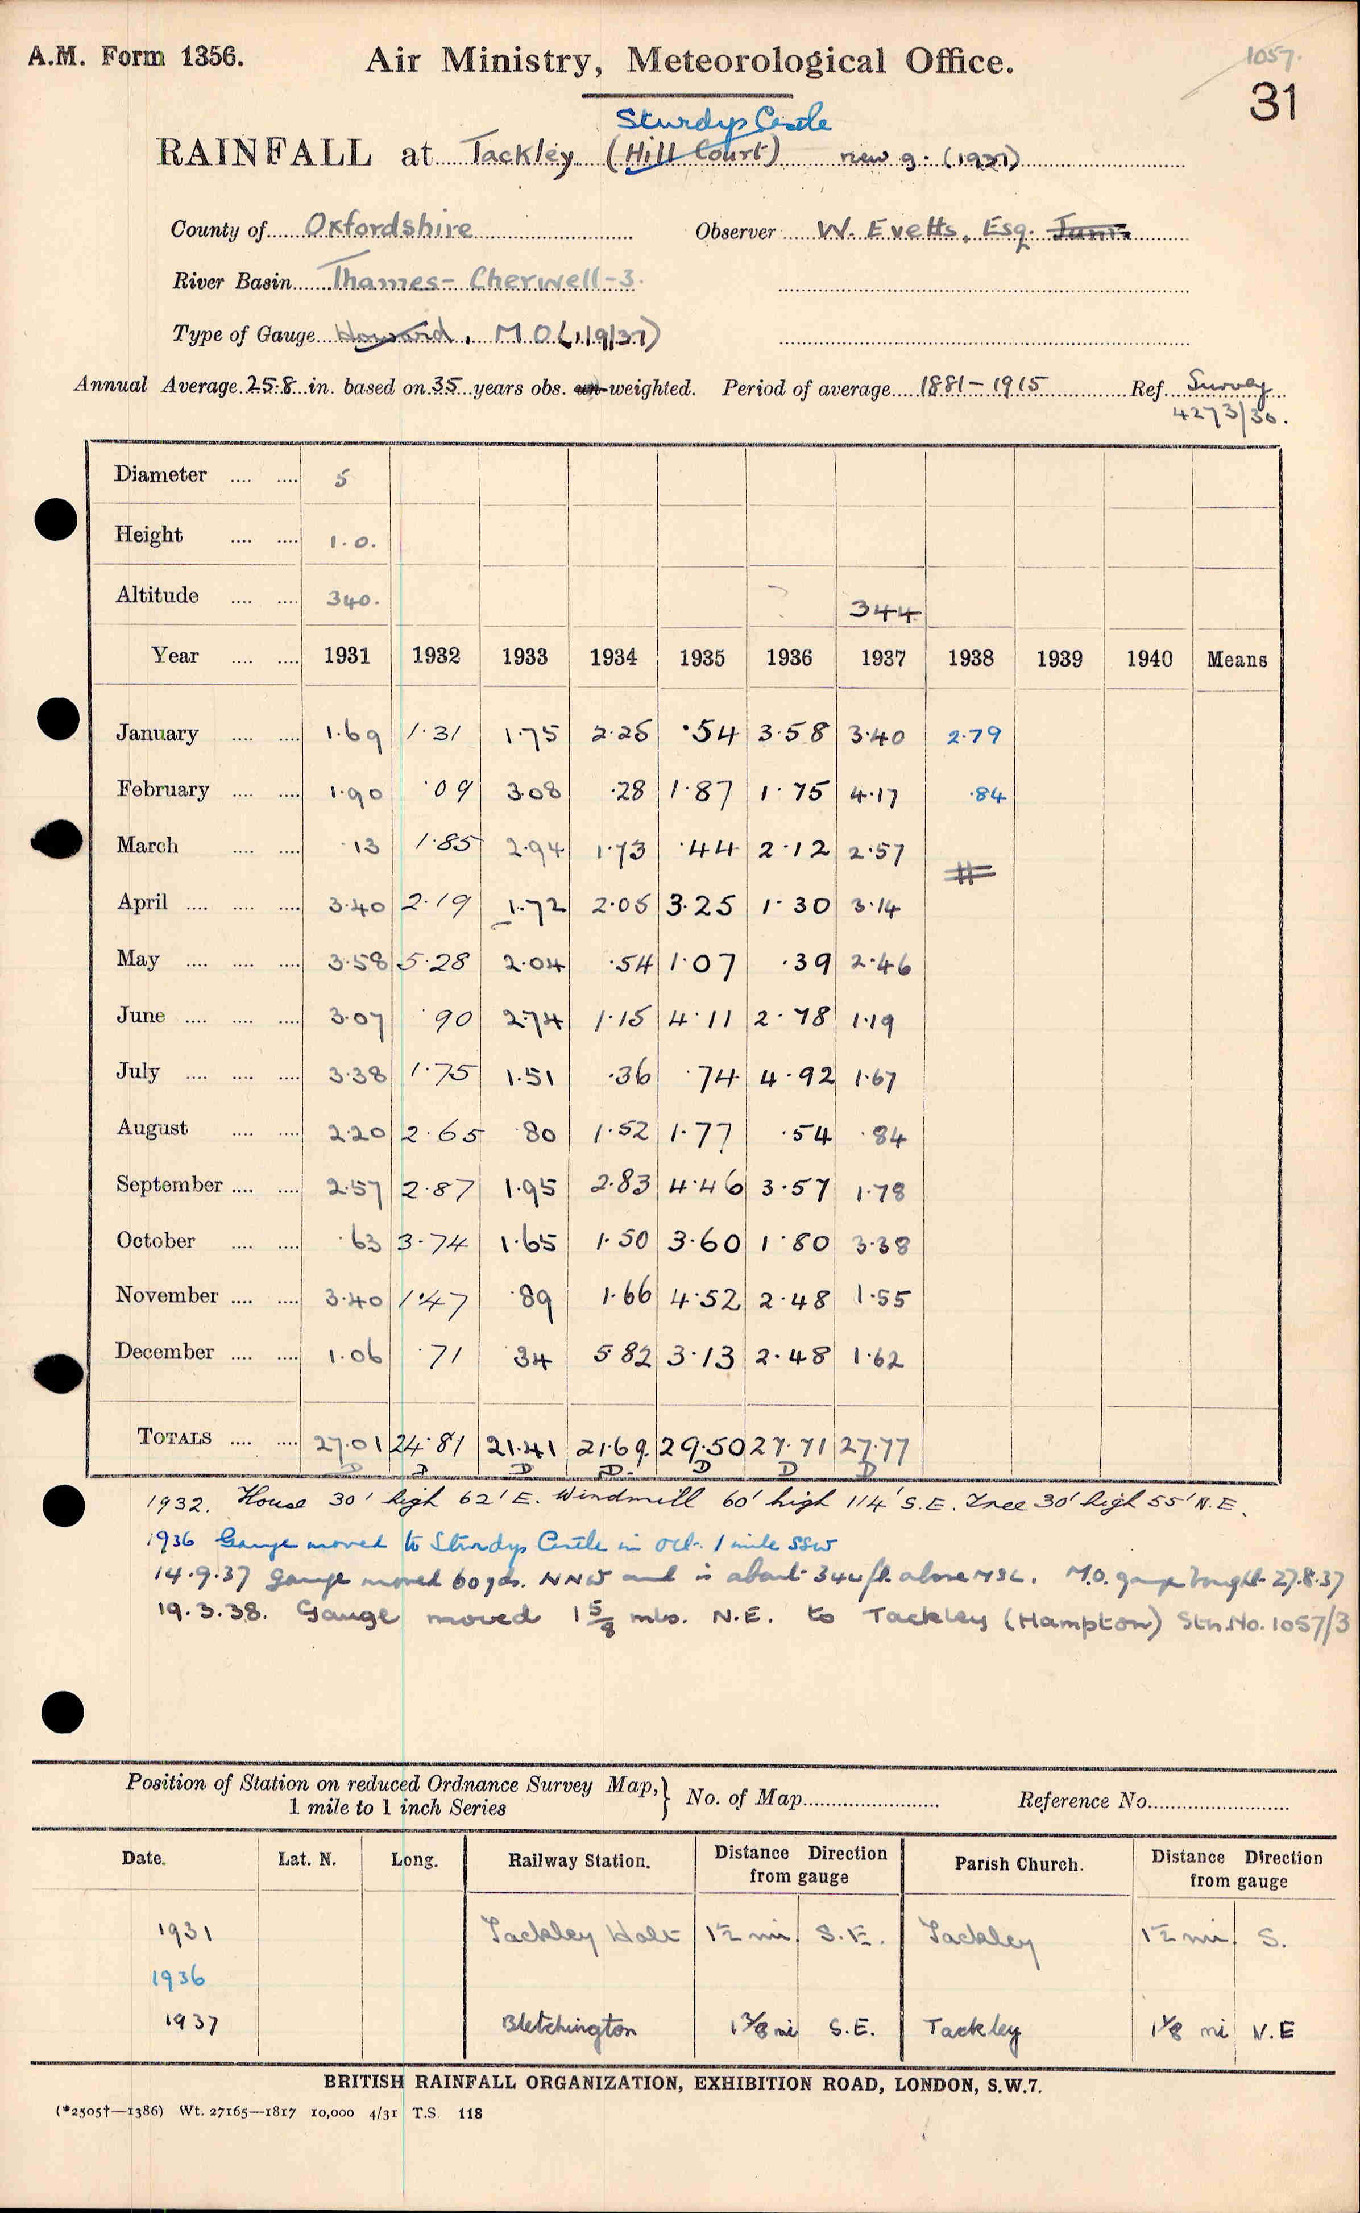 A.M. Form 1356.
Air Ministry, Meteorological Office.
1057.
31
Sturdys Castle
RAINFALL at Tackley (Hill Court) new g. (1937)
County of Oxfordshire Observer W. Evetts, Esq. Junr.
River Basin Thames - Cherwell - 3.
Type of Gauge Howard, M O (1/9/37)
Annual Average 25.8 in. based on 35 years obs. un-weighted. Period of average 1881-1915 Ref. Survey
4273/30.
Diameter 5
Height 1.0.
Altitude 340. ? 344
Year 1931 1932 1933 1934 1935 1936 1937 1938 1939 1940 Means
January 1.69 1.31 1.75 2.25 .54 3.58 3.40 2.79
February 1.90 .09 3.08 .28 1.87 1.75 4.17 .84
March .13 1.85 2.94 1.73 .44 2.12 2.57
April 3.40 2.19 1.72 2.05 3.25 1.30 3.14
May 3.58 5.28 2.04 .54 1.07 .39 2.46
June 3.07 .90 2.74 1.15 4.11 2.78 1.19
July 3.38 1.75 1.51 .36 .74 4.92 1.67
August 2.20 2.65 .80 1.52 1.77 .54 .84
September 2.57 2.87 1.95 2.83 4.46 3.57 1.78
October .63 3.74 1.65 1.50 3.60 1.80 3.38
November 3.40 1.47 .89 1.66 4.52 2.48 1.55
December 1.06 .71 .34 5.82 3.13 2.48 1.62
TOTALS 27.01 24.81 21.41 21.69 29.50 27.71 27.77
D D D D D D D
1932. House 30' high 62' E. Windmill 60' high 114' S.E. Tree 30' high 55' N.E.
1936 Gauge moved to Sturdys Castle in Oct. 1 mile SSW
14.9.37 gauge moved 60 yds. NNW and is about 344 ft. above MSL. M.O. gauge bought 27.8.37
19.3.38. Gauge moved 1 5/8 mls. N.E. to Tackley (Hampton) Stn. No. 1057/3
Position of Station on reduced Ordnance Survey Map, } No. of Map Reference No.
1 mile to 1 inch Series
Date. Lat. N. Long. Railway Station. Distance Direction from gauge Parish Church. Distance Direction from gauge
1931 Tackley Halt 1½ mi S.E. Tackley 1½ mi S.
1936
1937 Bletchington 1 3/8 mi S.E. Tackley 1 1/8 mi N.E
BRITISH RAINFALL ORGANIZATION, EXHIBITION ROAD, LONDON, S.W.7.
(*2505†—1386) Wt. 27165—1817 10,000 4/31 T.S. 118